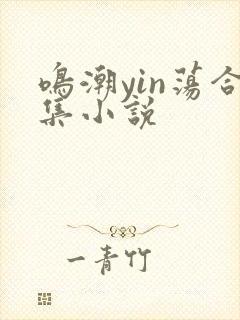 鳴潮yin蕩合
集小說
一青竹